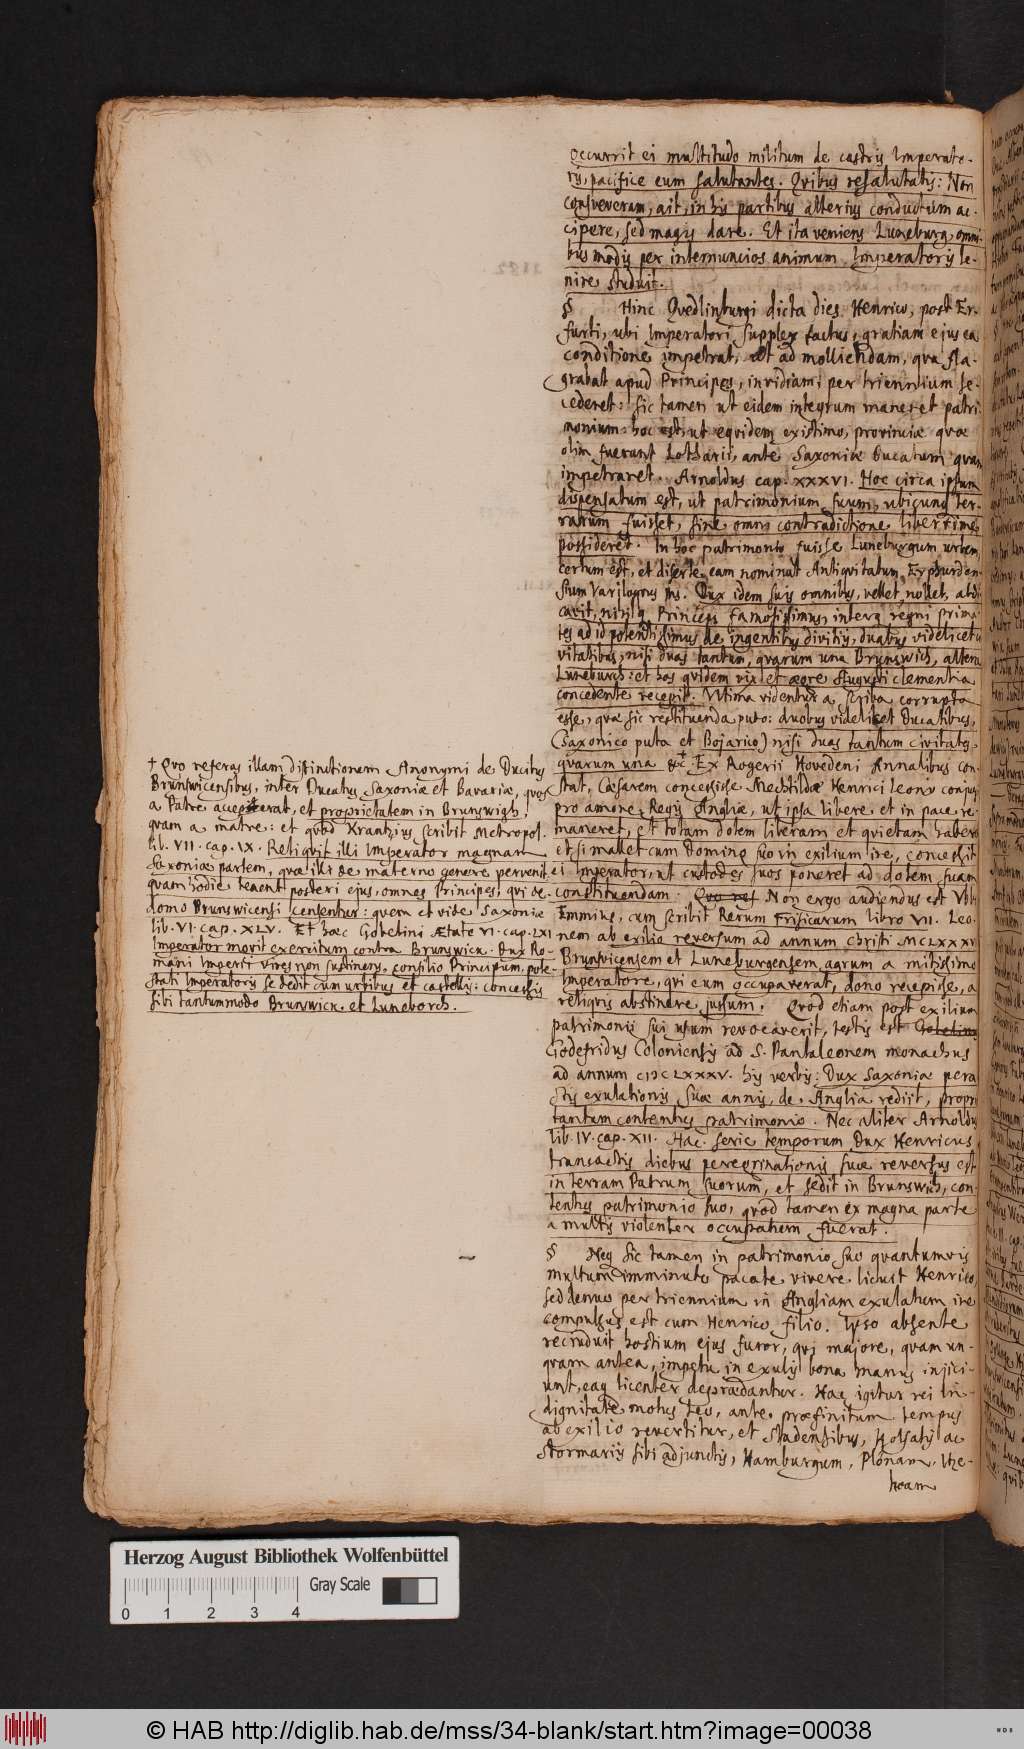 occurrit ei multitudo militum de castris Imperato-
ris, pacifice eum salutantes. Qvibus resalutatis: Non
consveveram, ait, in his partibus alterius conductum ac-
cipere, sed magis dare. Et ita veniens Luneburg, omni-
bus modis per internuncios animum Imperatoris le-
nire studuit.
§ Hinc Qvedlinburgi dicta dies Henrico, post Er-
furti, ubi Imperatori supplex factus, gratiam ejus ea
conditione impetrat, ut ad molliendam, qva fla-
grabat apud Principes, invidiam, per triennium se-
cederet: sic tamen ut eidem integrum maneret patri-
monium: hoc est, ut eqvidem existimo, provinciæ qvæ
olim fuerunt Lotharii, ante Saxoniæ Ducatum qvam
impetraret. Arnoldus cap. XXXVI. Hoc circa ipsum
dispensatum est, ut patrimonium suum, ubicunq ter-
rarum fuisset, sine omni contradictione liberrime
possideret. In hoc patrimonio fuisse Luneburgum urbem,
certum est, et diserte eam nominat Antiqvitatum Erphurden-
sium Variloqvus Ms. Dux idem suis omnibus, vellet nollet, abdi-
cavit, nisi q Princeps famosissimus, interq regni prima-
tes ad id potentissimus de ingentibus divitiis, duabus videlicet ci-
vitatibus, nisi duas tantum, qvarum una Brunswich, altera
Luneburch: et has qvidem vix et ægre Augusti clementia
concedente recepit. Ultima videntur a scriba corrupta
esse, qvæ sic restituenda puto: duobus videlicet Ducatibus,
(Saxonico puta et Bojarico) nisi duas tantum civitates,
qvarum una &c. † Ex Rogerii Hovedeni Annalibus con-
stat, Cæsarem concessisse Mechtildæ Henrici Leonis conjugi
pro amore Regis Angliæ, ut ipsa libere et in pace re-
maneret, et totam dotem liberam et qvietam haberet
et, si mallet cum Domino suo in exilium ire, concessit
ei Imperator, ut custodes suos poneret ad dotem suam
constituendam. Non ergo audiendus est Ubbo
Emmius, cum scribit Rerum Frisicarum libro VII. Leo-
nem ab exilio reversum ad annum Christi MCLXXXV
Brunsvicensem et Luneburgensem agrum a mitissimo
Imperatore, qvi eum occupaverat, dono recepisse, a
reliqvis abstinere jussum. Qvod etiam post exilium
patrimonii sui usum revocaverit, testis est Gobelinus
Godefridus Coloniensis ad S. Pantaleonem monachus
ad annum CIƆCLXXXV. his verbis: Dux Saxoniæ pera-
ctis exulationis suæ annis, de Anglia rediit, proprio
tantum contentus patrimonio. Nec aliter Arnoldus
lib. IV. cap. XII. Hac serie temporum Dux Henricus
transactis diebus peregrinationis suæ reversus est
in terram Patrum suorum, et sedit in Brunswich, con-
tentus patrimonio suo, qvod tamen ex magna parte
a multis violenter occupatum fuerat.
§ Neq sic tamen in patrimonio suo qvantumvis
multum imminuto pacate vivere licuit Henrico,
sed denuo per triennium in Angliam exulatum ire
compulsus est cum Henrico filio. Ipso absente
recruduit hostium ejus furor, qvi majore, qvam un-
qvam antea, impetu in exulis bona manus injici-
unt, eaq licenter deprædantur. Hac igitur rei in-
dignitate motus Leo, ante præfinitum tempus
ab exilio revertitur, et Stadensibus, Holsatis ac
Stormariis sibi adjunctis, Hamburgum, Plönam, Itze-
hoam
† Qvo referas illam distinctionem Anonymi de Ducibus
Brunswicensibus, inter Ducatus Saxoniæ et Bavariæ, qvos
a Patre acceperat, et proprietatem in Brunswigh,
qvam a matre: et qvod Krantzius scribit Metropol.
lib. VII. cap. IX. Reliqvit illi Imperator magnam
Saxoniæ partem, qvæ illi de materno genere pervenit,
qvam hodie tenent posteri ejus, omnes Principes, qvi de
domo Brunswicensi censentur: qvem et vide Saxoniæ
lib. VI. cap. XLV. Et hæc Gobelini Ætate VI. cap. LXI
Imperator movit exercitum contra Brunswick. Dux Ro-
mani Imperii vires non sustinens, consilio Principum, pote-
stati Imperatoris se dedit cum urbibus et castellis: concessis
sibi tantummodo Brunswick et Luneborch.
Herzog August Bibliothek Wolfenbüttel
Gray Scale
0 1 2 3 4
© HAB http://diglib.hab.de/mss/34-blank/start.htm?image=00038